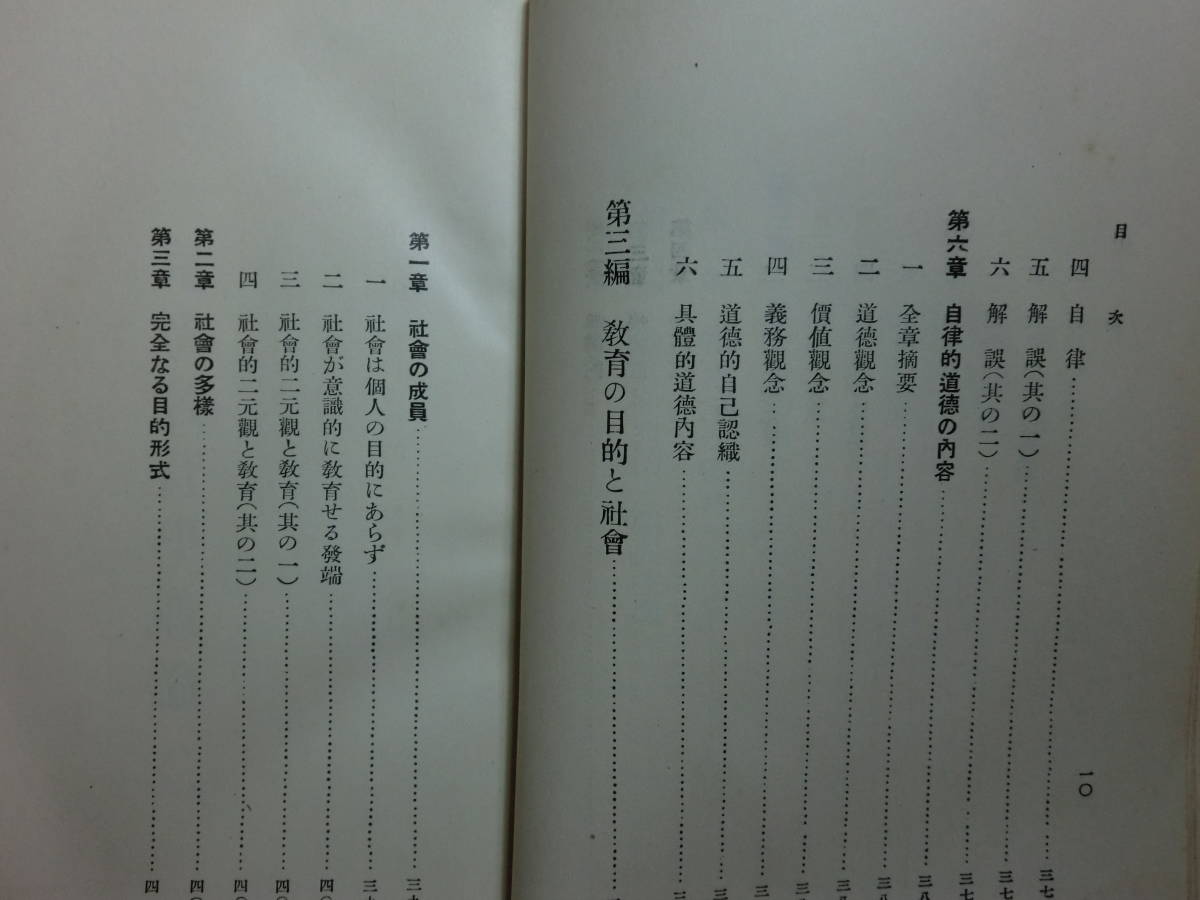 目次
一〇
四 自律……三七
五 解誤(其の一)……三七
六 解誤(其の二)……三七
第六章 自律的道德の內容……三七
一 全章摘要……三八
二 道德觀念……三八
三 價値觀念……三八
四 義務觀念……三八
五 道德的自己認識……三
六 具體的道德內容……三
第三編 敎育の目的と社會……
第一章 社會の成員……三九
一 社會は個人の目的にあらず……三九
二 社會が意識的に敎育せる發端……四〇
三 社會的二元觀と敎育(其の一)……四〇
四 社會的二元觀と敎育(其の二)……四〇
第二章 社會の多樣……四〇
第三章 完全なる目的形式……四